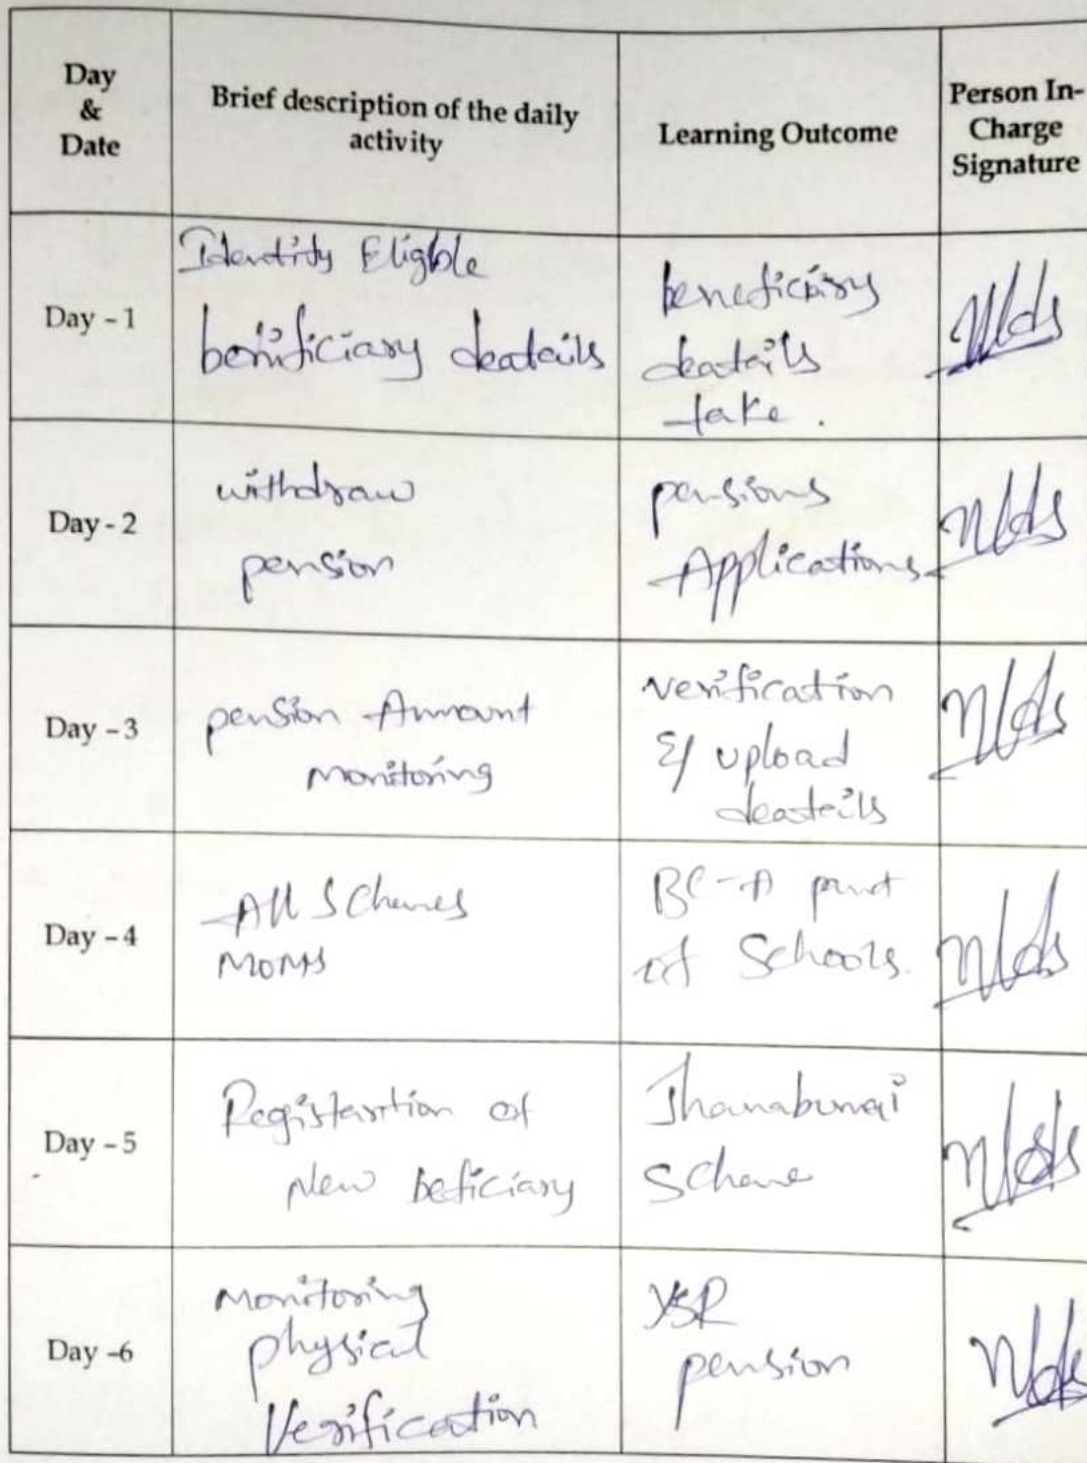 Day
&
Date
Brief description of the daily
activity
Learning Outcome
Person In-
Charge
Signature
Day - 1
Identity Eligble
benificiary deatails
beneficiary
deatails
take.
Day - 2
withdraw
pension
pensions
Applications
Day - 3
pension Ammount
monitoring
verification
& upload
deatails
Day - 4
All Schemes
BC-A
of Schools.
Day - 5
Registartion of
New beficiary
Scheme
Day -6
monitoring
physical
Verification
YSR
pension